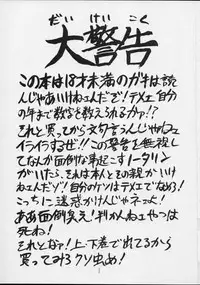 だいけいこく
大警告
この本は18才未満のガキは読
んじゃあいけねェんだぞ！テメェ自分
の年まで数字を数えられるか!?
それと買ってから文句言うんじゃねェ
イライラするぜ!!この警告を無視し
てなんか面倒な事起こすノータリン
がいたら、それは本人とその親がいけ
ねェんだゾ！自分のケツはテメェでなめろ！
こっちに迷惑かけんじゃネェっ！
ああ面倒臭ェ！判かんねェやつは
死ね！
それとなァ！上、下巻で出てるから
買ってみろクソ虫め！